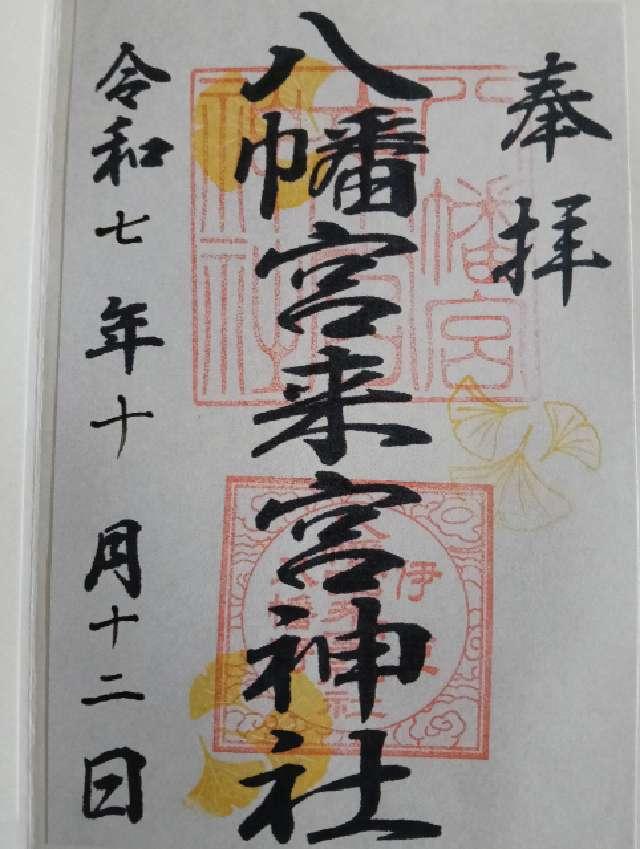 奉拝
八幡宮来宮神社
令和七年十月十二日